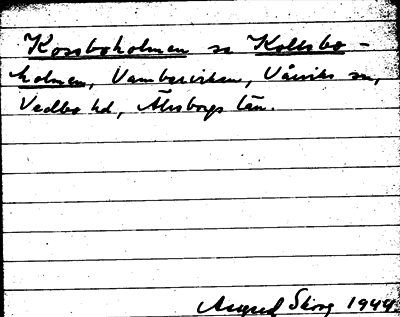 Kossboholmen se Kollsbo-
holmen, Vambarviken, Vårviks sn,
Vedbo hd, Älvsborgs län.
Astrid Skog 1944.